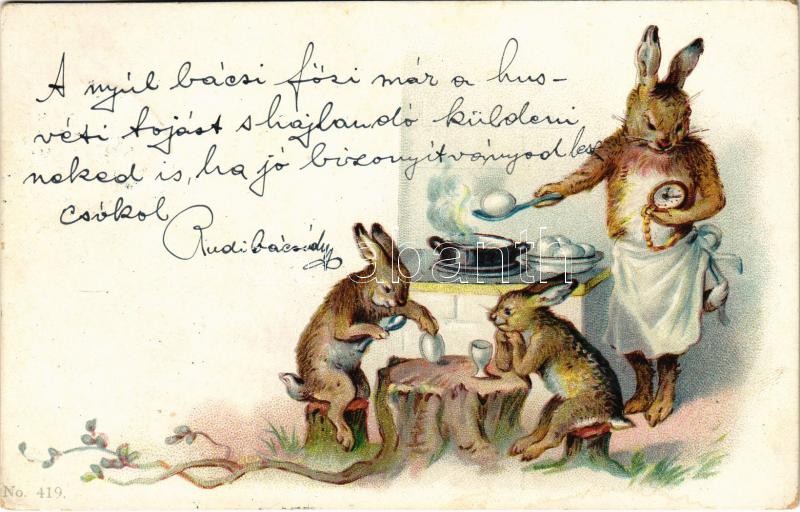 A nyúl bácsi főzi már a hus-
véti tojást s hajlandó küldeni
neked is, ha jó bizonyítványod lesz
csókol
Rudi bácsid
abanth
No. 419.